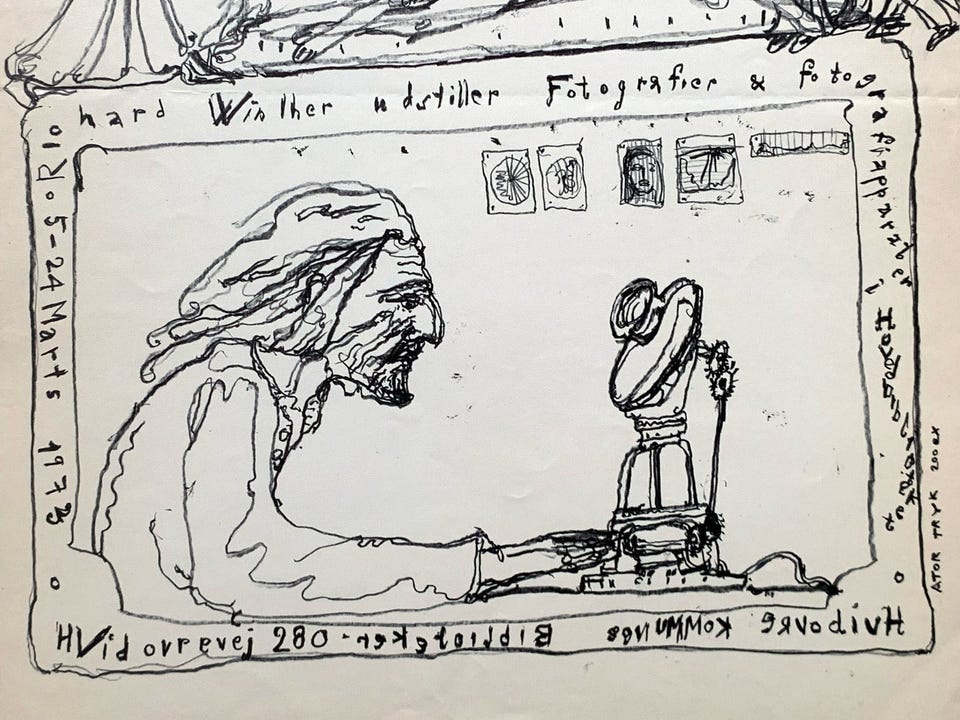 hard Winther udstiller Fotografier & fotografiapparater i
Hvidovre Kommunes Biblioteker · Hvidovrevej 280
5-24 Marts 1973
ATOR TRYK 200 EX